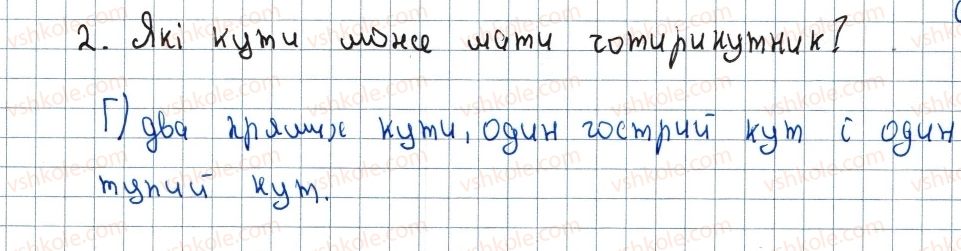 2. Які кути може мати чотирикутник?
Г) два прямих кути, один гострий кут і один
тупий кут.